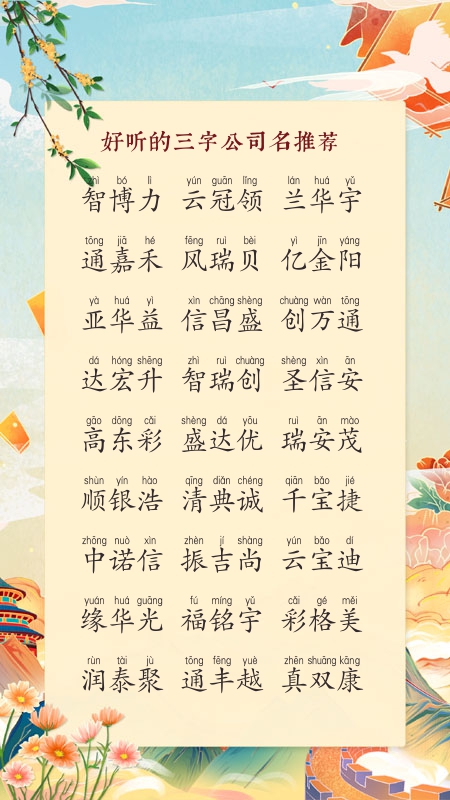 好听的三字公司名推荐
zhì bó lì yún guān lǐng lán huá yǔ
智博力 云冠领 兰华宇
tōng jiā hé fēng ruì bèi yì jīn yáng
通嘉禾 风瑞贝 亿金阳
yà huá yì xìn chāng shèng chuàng wàn tōng
亚华益 信昌盛 创万通
dá hóng shēng zhì ruì chuàng shèng xìn ān
达宏升 智瑞创 圣信安
gāo dōng cǎi shèng dá yōu ruì ān mào
高东彩 盛达优 瑞安茂
shùn yín hào qīng diǎn chéng qiān bǎo jié
顺银浩 清典诚 千宝捷
zhōng nuò xìn zhèn jí shàng yún bǎo dí
中诺信 振吉尚 云宝迪
yuán huá guāng fú míng yǔ cǎi gé měi
缘华光 福铭宇 彩格美
rùn tài jù tōng fēng yuè zhēn shuāng kāng
润泰聚 通丰越 真双康